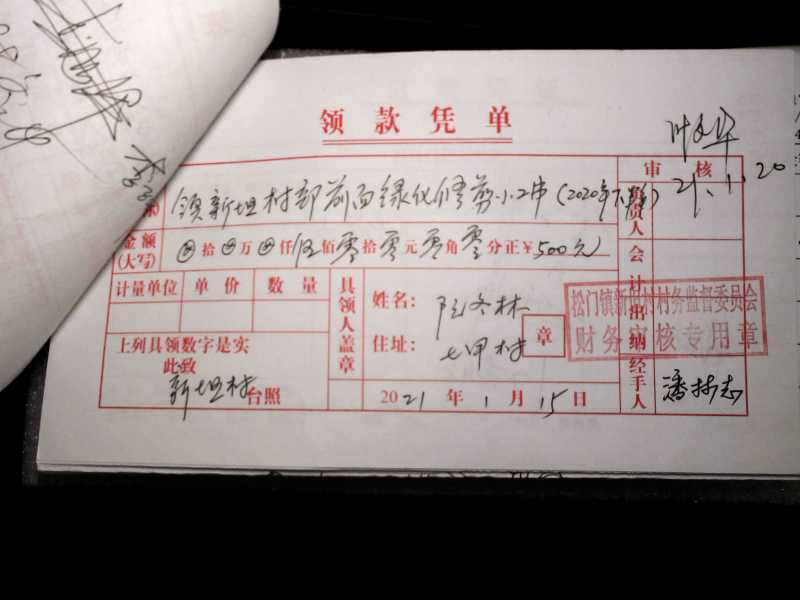 领款凭单
领新坦村部前面绿化修剪小工串(2020年下半年)
审核
21.1.20
负责人
金额(大写) ⊗拾⊗万⊗仟伍佰零拾零元零角零分正¥500元
计量单位 单价 数量
具领人盖章
姓名: 阮冬林
住址: 七甲村
章
会计
出纳
经手人
潘林志
松门镇新坦村村务监督委员会
财务审核专用章
上列具领数字是实
此致
新坦村台照
2021年1月15日